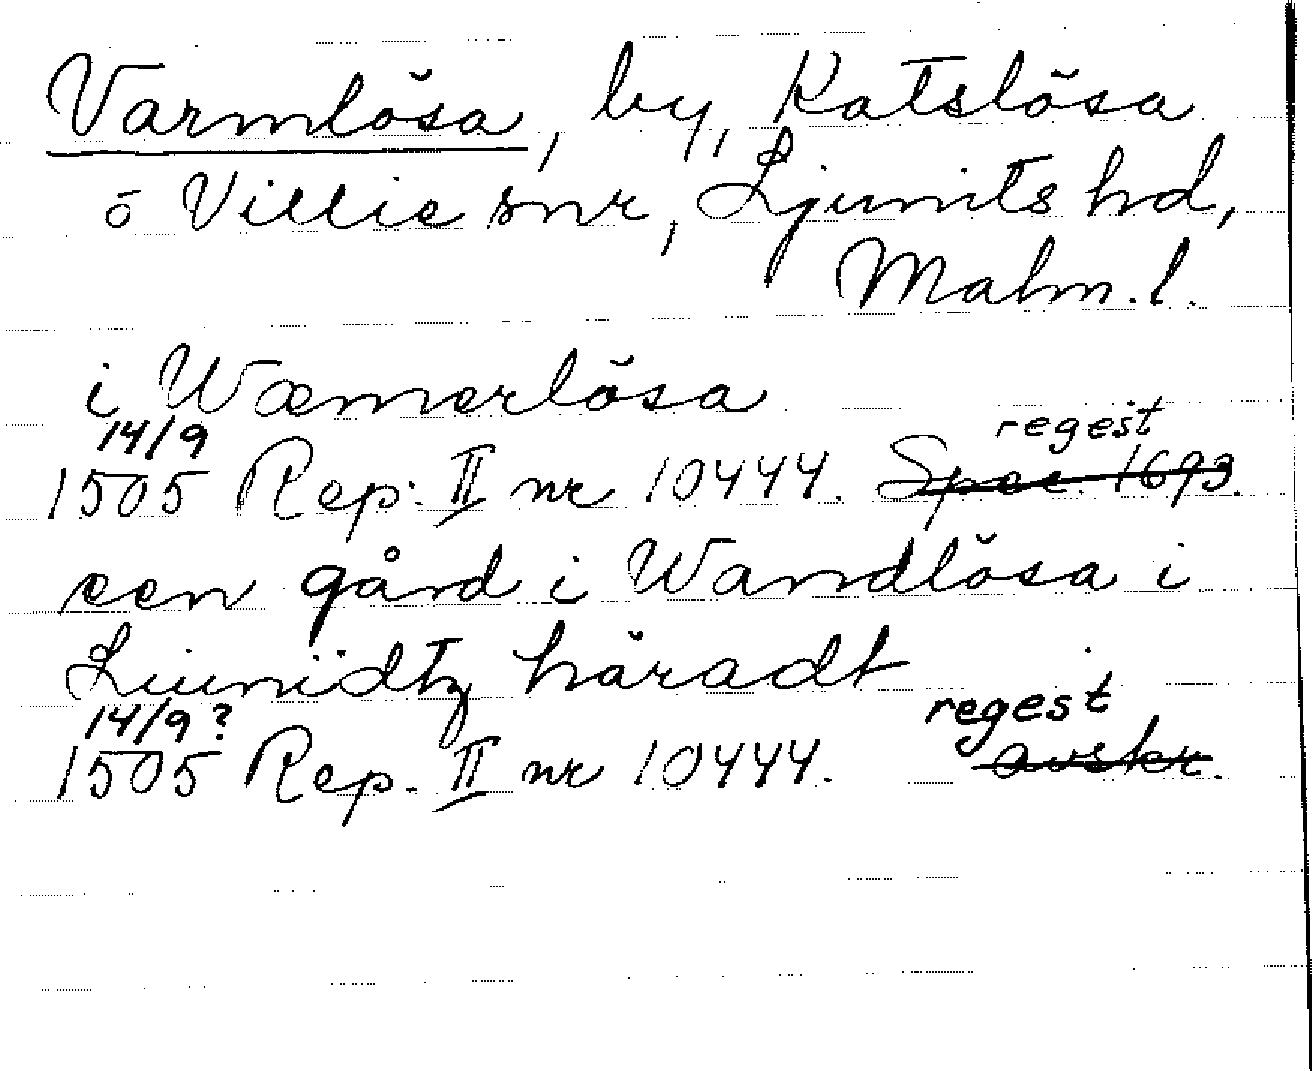 Varmlösa, by, Katslösa
o Villie snr, Ljunits hd,
Malm. l.
i Wæmerlösa
14/9 regest
1505 Rep. II nr 10444. Spec. 1693.
een gård i Wandlösa i
Liunidtz häradt
14/9? regest
1505 Rep. II nr 10444. avskr.